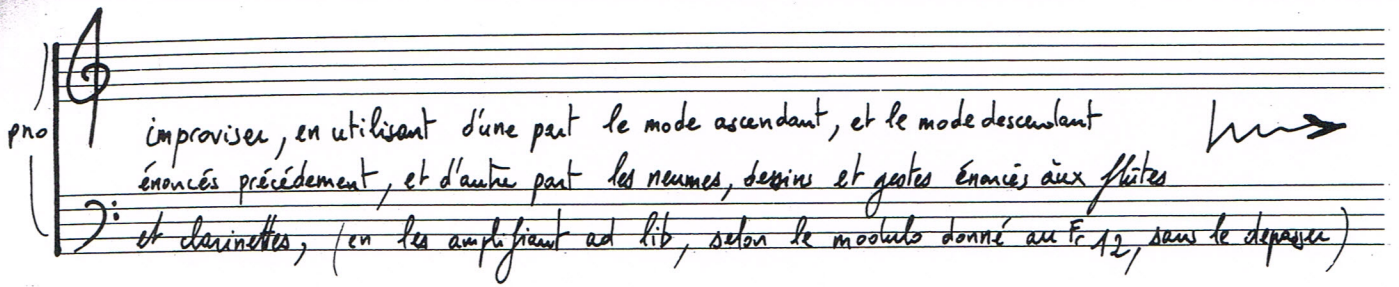 pno
improviser, en utilisant d'une part le mode ascendant, et le mode descendant
énoncés précédement, et d'autre part les neumes, dessins et gestes énoncés aux flûtes
et clarinettes, (en les amplifiant ad lib, selon le modulo donné au Fr 12, sans le dépasser)